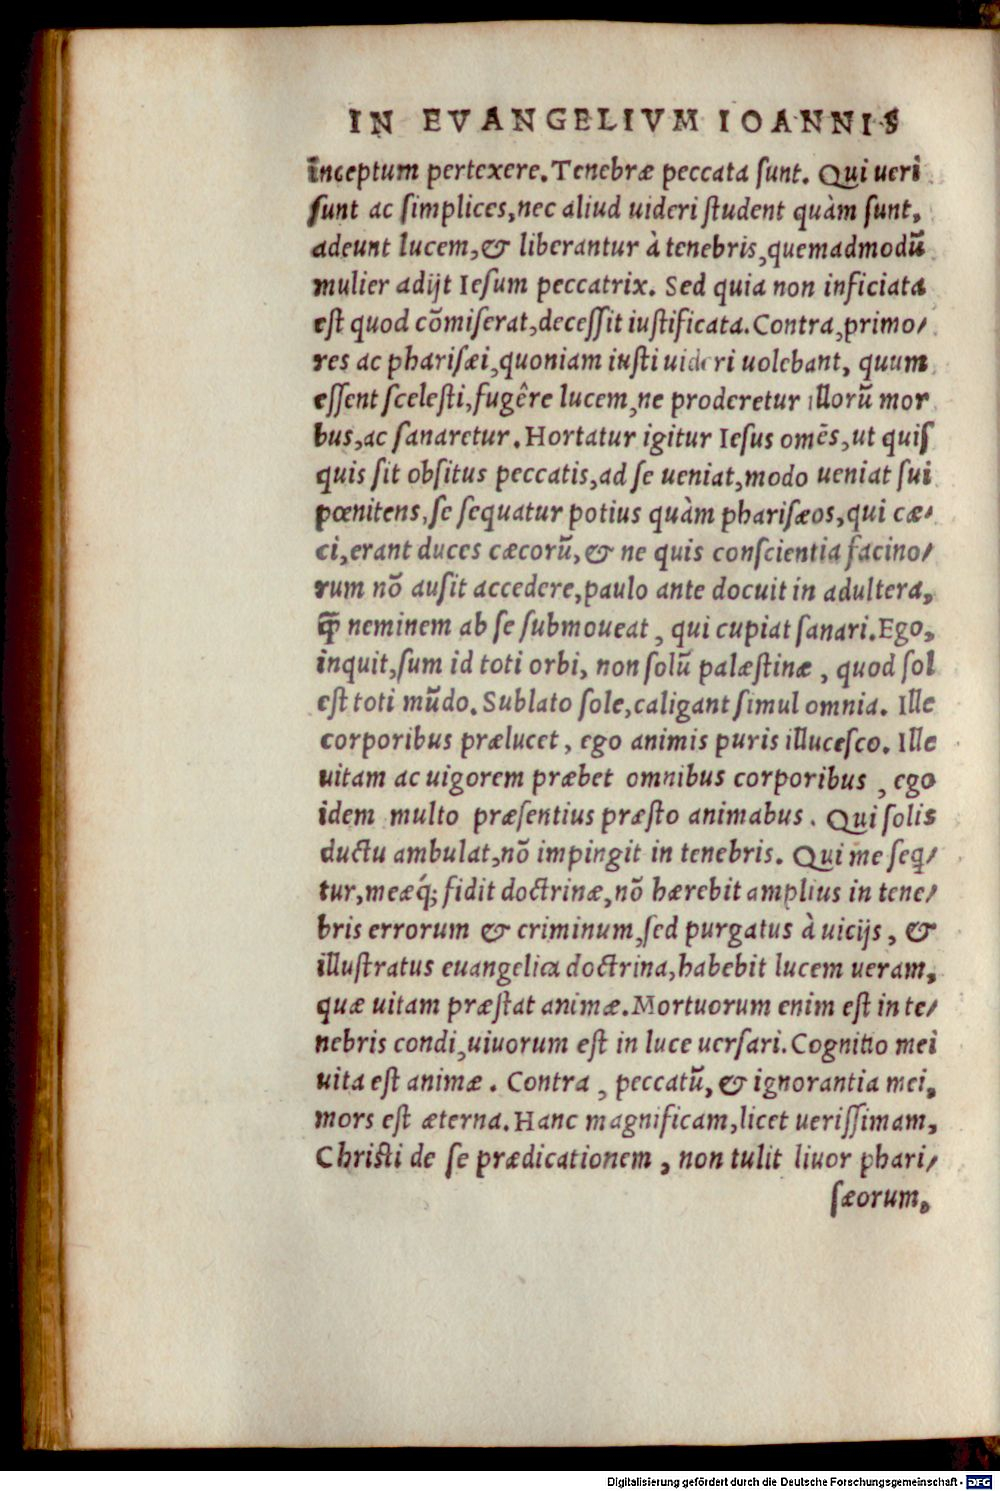 IN EVANGELIVM IOANNIS
inceptum pertexere. Tenebræ peccata sunt. Qui ueri
sunt ac simplices, nec aliud uideri student quàm sunt,
adeunt lucem, & liberantur à tenebris, quemadmodũ
mulier adijt Iesum peccatrix. Sed quia non inficiata
est quod cõmiserat, decessit iustificata. Contra, primo/
res ac pharisæi, quoniam iusti uideri uolebant, quum
essent scelesti, fugêre lucem, ne proderetur illorũ mor
bus, ac sanaretur. Hortatur igitur Iesus omẽs, ut quis
quis sit obsitus peccatis, ad se ueniat, modo ueniat sui
pœnitens, se sequatur potius quàm pharisæos, qui cæ/
ci, erant duces cæcorũ, & ne quis conscientia facino/
rum nõ ausit accedere, paulo ante docuit in adultera,
q̃ neminem ab se submoueat, qui cupiat sanari. Ego,
inquit, sum id toti orbi, non solũ palæstinæ, quod sol
est toti mũdo. Sublato sole, caligant simul omnia. Ille
corporibus prælucet, ego animis puris illucesco. Ille
uitam ac uigorem præbet omnibus corporibus, ego
idem multo præsentius præsto animabus. Qui solis
ductu ambulat, nõ impingit in tenebris. Qui me seq̃/
tur, meæq́; fidit doctrinæ, nõ hærebit amplius in tene/
bris errorum & criminum, sed purgatus à uicijs, &
illustratus euangelica doctrina, habebit lucem ueram,
quæ uitam præstat animæ. Mortuorum enim est in te/
nebris condi, uiuorum est in luce uersari. Cognitio mei
uita est animæ. Contra, peccatũ, & ignorantia mei,
mors est æterna. Hanc magnificam, licet uerissimam,
Christi de se prædicationem, non tulit liuor phari/
sæorum,
Digitalisierung gefördert durch die Deutsche Forschungsgemeinschaft - DFG